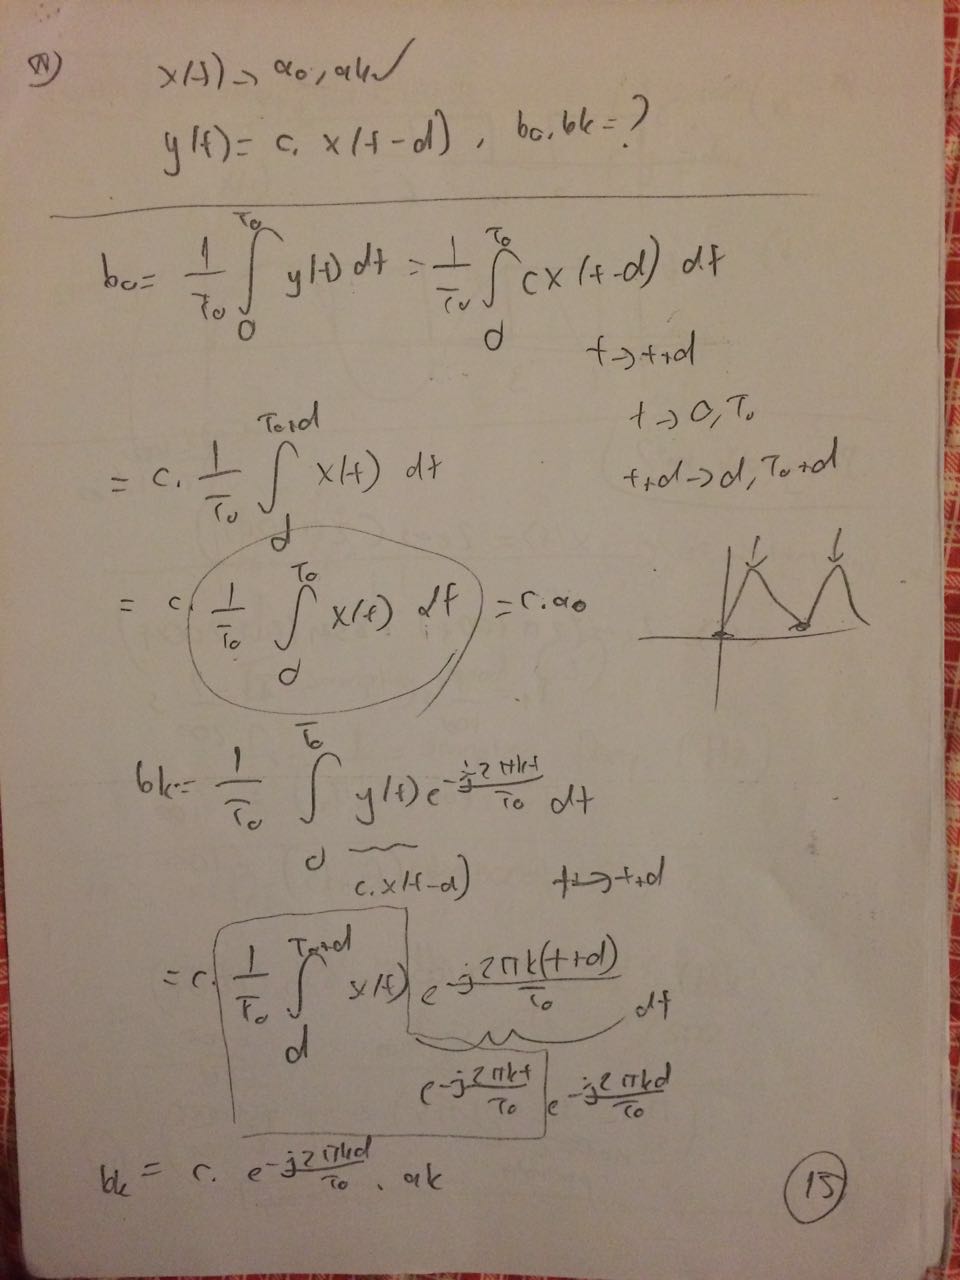 x(t) → a₀, ak ✓
y(t) = c. x(t-d), b₀, bk = ?
b₀ = 1/T₀ ∫₀^T₀ y(t) dt = 1/T₀ ∫_d^T₀ c x(t-d) dt
t → t+d
t → 0, T₀
t+d → d, T₀+d
= c. 1/T₀ ∫_d^(T₀+d) x(t) dt
= c. 1/T₀ ∫_d^T₀ x(t) dt = c.a₀
bk = 1/T₀ ∫_d^T₀ y(t) e^(-j2πkt/T₀) dt
c.x(t-d)
t → t+d
= c. 1/T₀ ∫_d^(T₀+d) x(t) e^(-j2πk(t+d)/T₀) dt
e^(-j2πkt/T₀) e^(-j2πkd/T₀)
bk = c. e^(-j2πkd/T₀) . ak
15